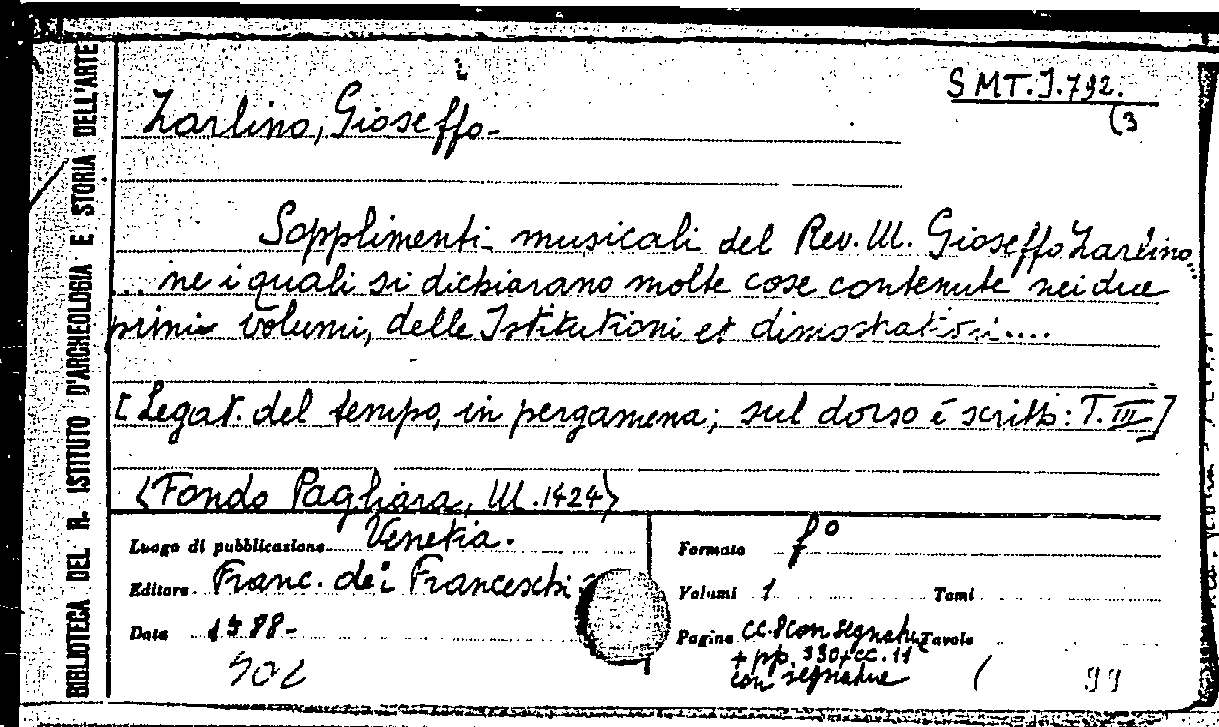 BIBLIOTECA DEL R. ISTITUTO D'ARCHEOLOGIA E STORIA DELL'ARTE
SMT.J.792.
(3
Zarlino, Gioseffo-
Sopplimenti musicali del Rev. M. Gioseffo Zarlino..
... ne i quali si dichiarano molte cose contenute nei due
primi volumi, delle Istitutioni et dimostrationi....
[Legat. del tempo, in pergamena; sul dorso è scritto: T. III]
(Fondo Pagliara, M. 1424)
Luogo di pubblicazione Venetia.
Formato fº
Editore Franc. dei Franceschi
Volumi 1 Tomi
Data 1588-
Pagine cc. 8 con segnature Tavole
+ pp. 330 + cc. 11
con segnature
( 99